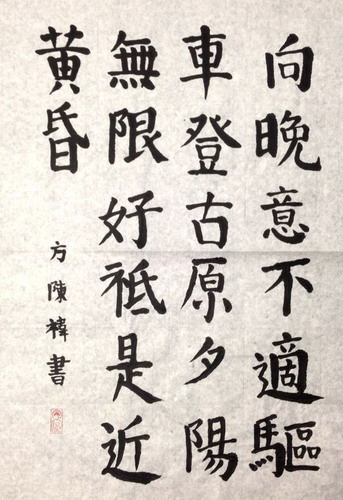 向晚意不適驅
車登古原夕陽
無限好祗是近
黃昏
方陳褘書